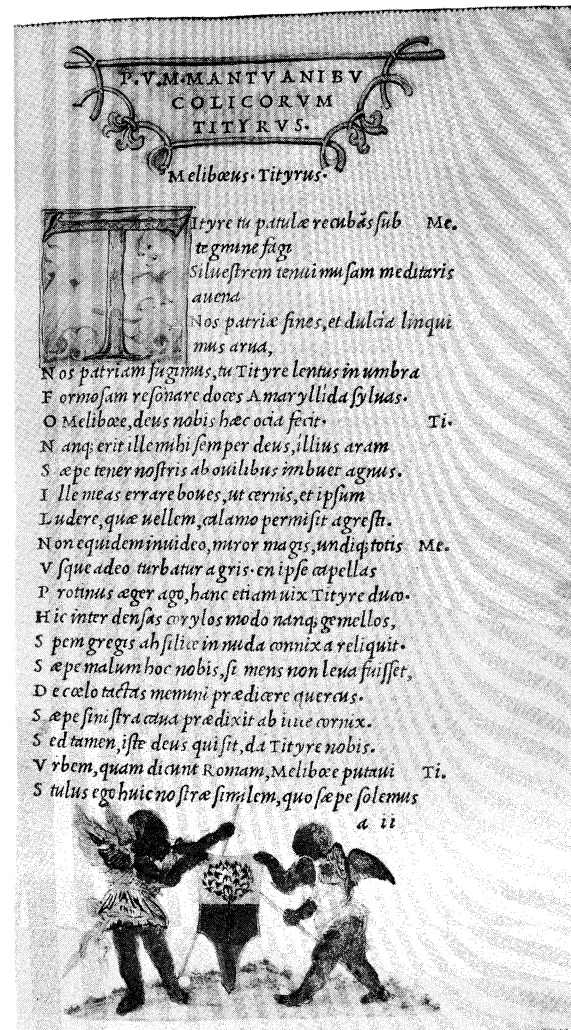 P.V.M.MANTVANI BV
COLICORVM
TITYRVS.
Melibœus. Tityrus.
TItyre tu patulæ recubãs sub Me.
tegmine fagi
Siluestrem tenui musam meditaris
auena
Nos patriæ fines, et dulcia linqui
mus arua,
Nos patriam fugimus, tu Tityre lentus in umbra
Formosam resonare doces Amaryllida syluas.
O Melibœe, deus nobis hæc ocia fecit. Ti.
Nanq; erit ille mihi semper deus, illius aram
Sæpe tener nostris ab ouilibus imbuet agnus.
Ille meas errare boues, ut cernis, et ipsum
Ludere, quæ uellem, calamo permisit agresti.
Non equidem inuideo, miror magis, undiq; totis Me.
Vsque adeo turbatur agris. en ipse capellas
Protinus æger ago, hanc etiam uix Tityre duco.
Hic inter densas corylos modo nanq; gemellos,
Spem gregis ah silice in nuda connixa reliquit.
Sæpe malum hoc nobis, si mens non leua fuisset,
De cœlo tactas memini prædicere quercus.
Sæpe sinistra caua prædixit ab ilice cornix.
Sed tamen, iste deus qui sit, da Tityre nobis.
Vrbem, quam dicunt Romam, Melibœe putaui Ti.
Stultus ego huic nostræ similem, quo sæpe solemus
a ii